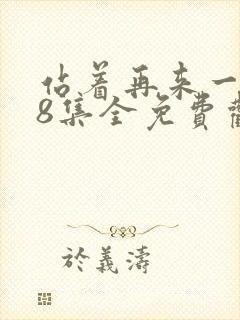 佔着再来一
8集全免費
於義濤